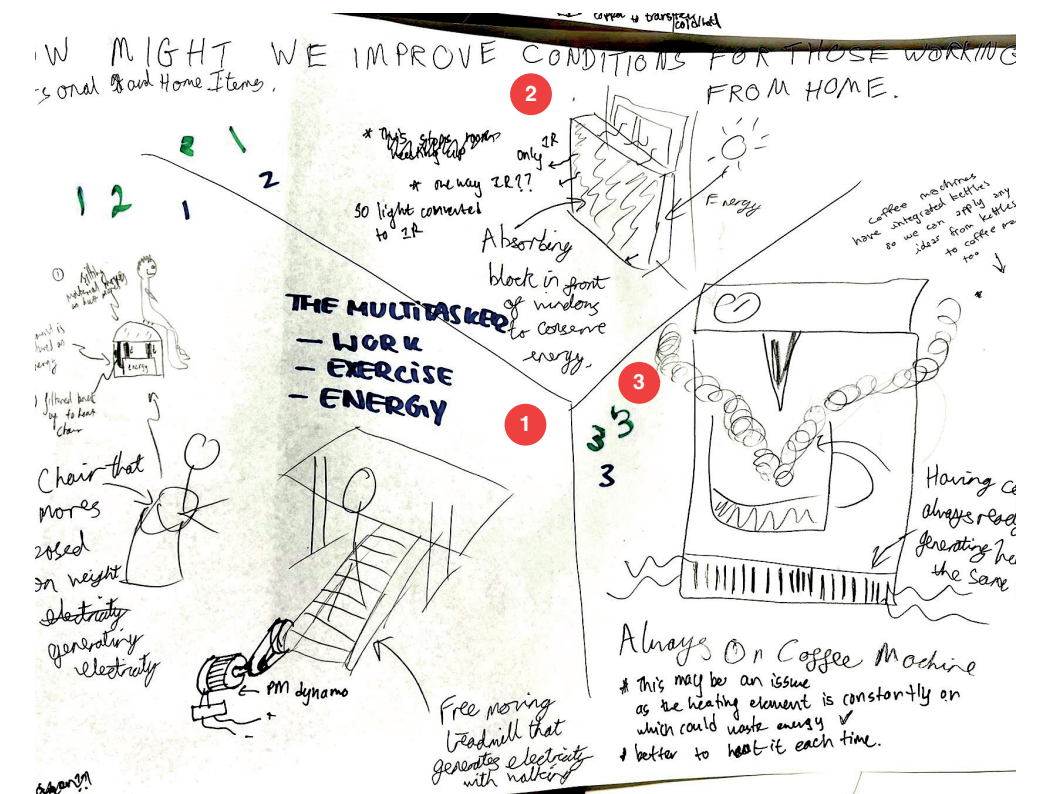 copper to transfer
cold/heat
OW MIGHT WE IMPROVE CONDITIONS FOR THOSE WORKING
FROM HOME.
sonal and Home Items.
2
* This stops rooms
heating up
only IR
* one way IR??
so light converted
to IR
Energy
Absorbing
block in front
of windows
to conserve
energy.
coffee machines
have integrated kettles
so we can apply any
ideas from kettles
to coffee ma
too
*
2 1
2
1 2
1
① sitting
energy
filtered
up to heat
chair
THE MULTITASKER
- WORK
- EXERCISE
- ENERGY
1
3
3 3
3
Chair that
moves
based
on weight
electricity
generating
electricity
PM dynamo
Free moving
treadmill that
generates electricity
with walking
Having co
always read
generating he
the same
Always On Coffee Machine
* This may be an issue
as the heating element is constantly on
which could waste energy
* better to heat it each time.